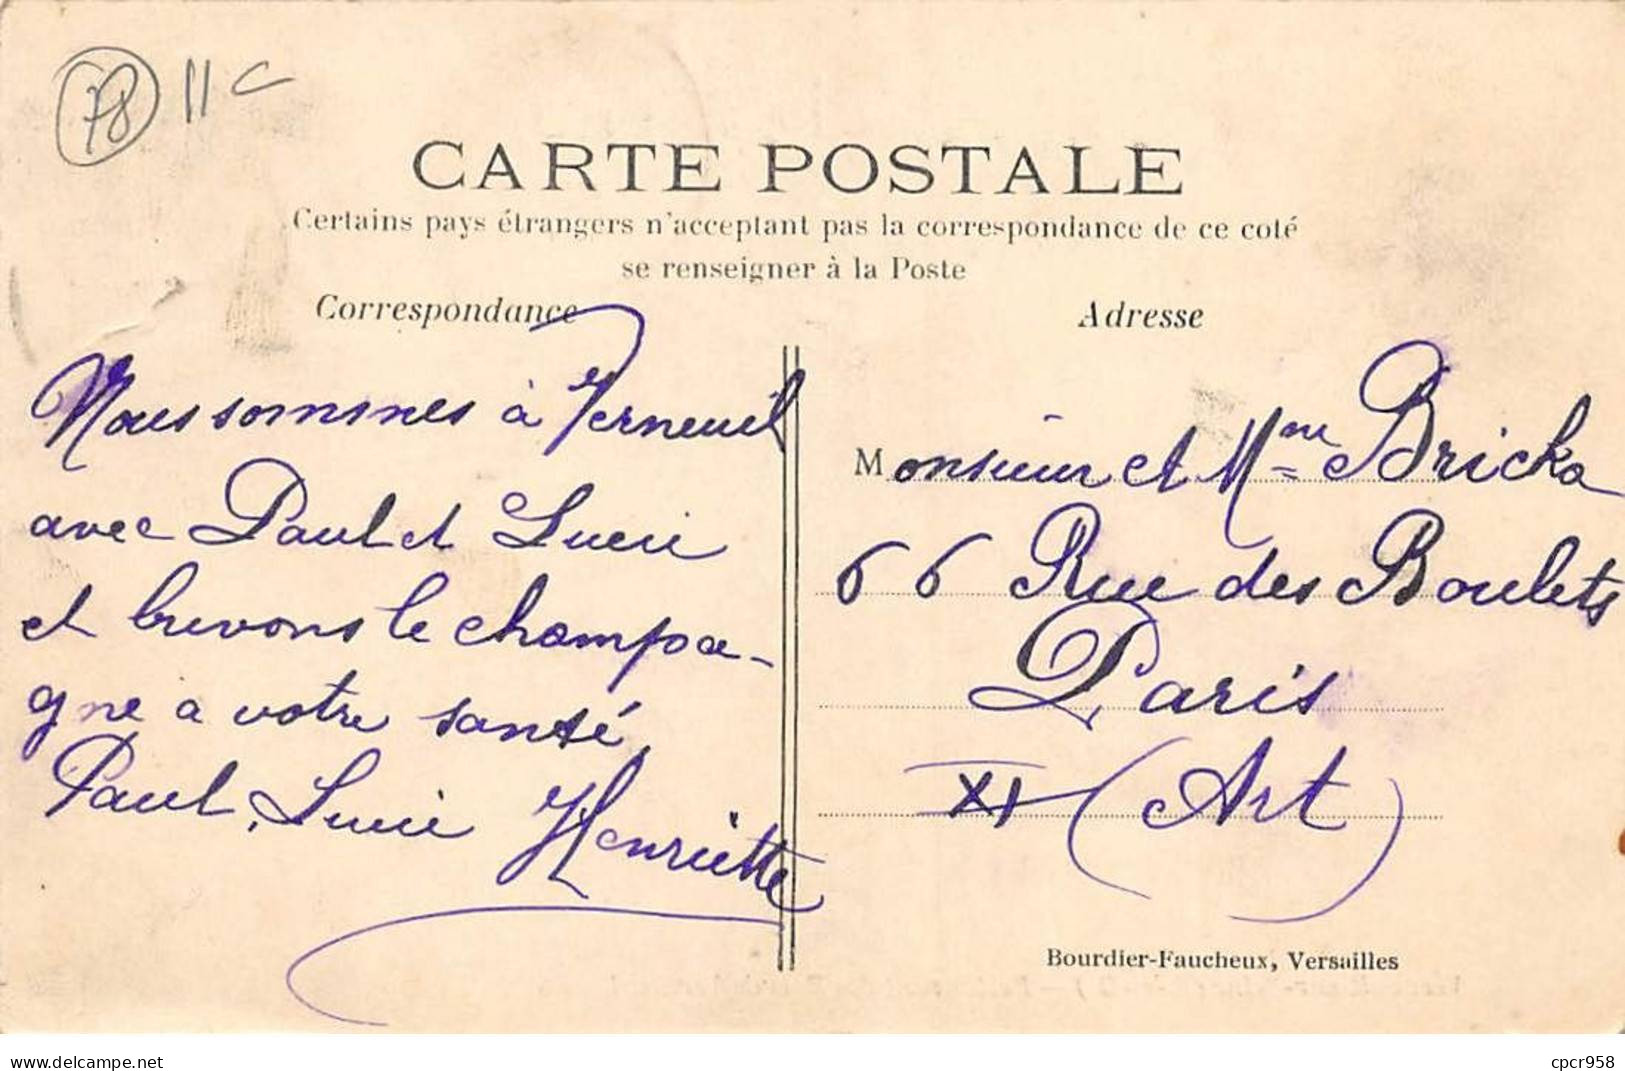 78 11 c
CARTE POSTALE
Certains pays étrangers n'acceptant pas la correspondance de ce coté
se renseigner à la Poste
Correspondance
Nous sommes à Verneuil
avec Paul et Lucie
et buvons le champa-
gne a votre santé,
Paul, Lucie Henriette
Adresse
Monsieur et Mme Bricka
66 Rue des Boulets
Paris
XI (Art)
Bourdier-Faucheux, Versailles
www.delcampe.net
cpcr958